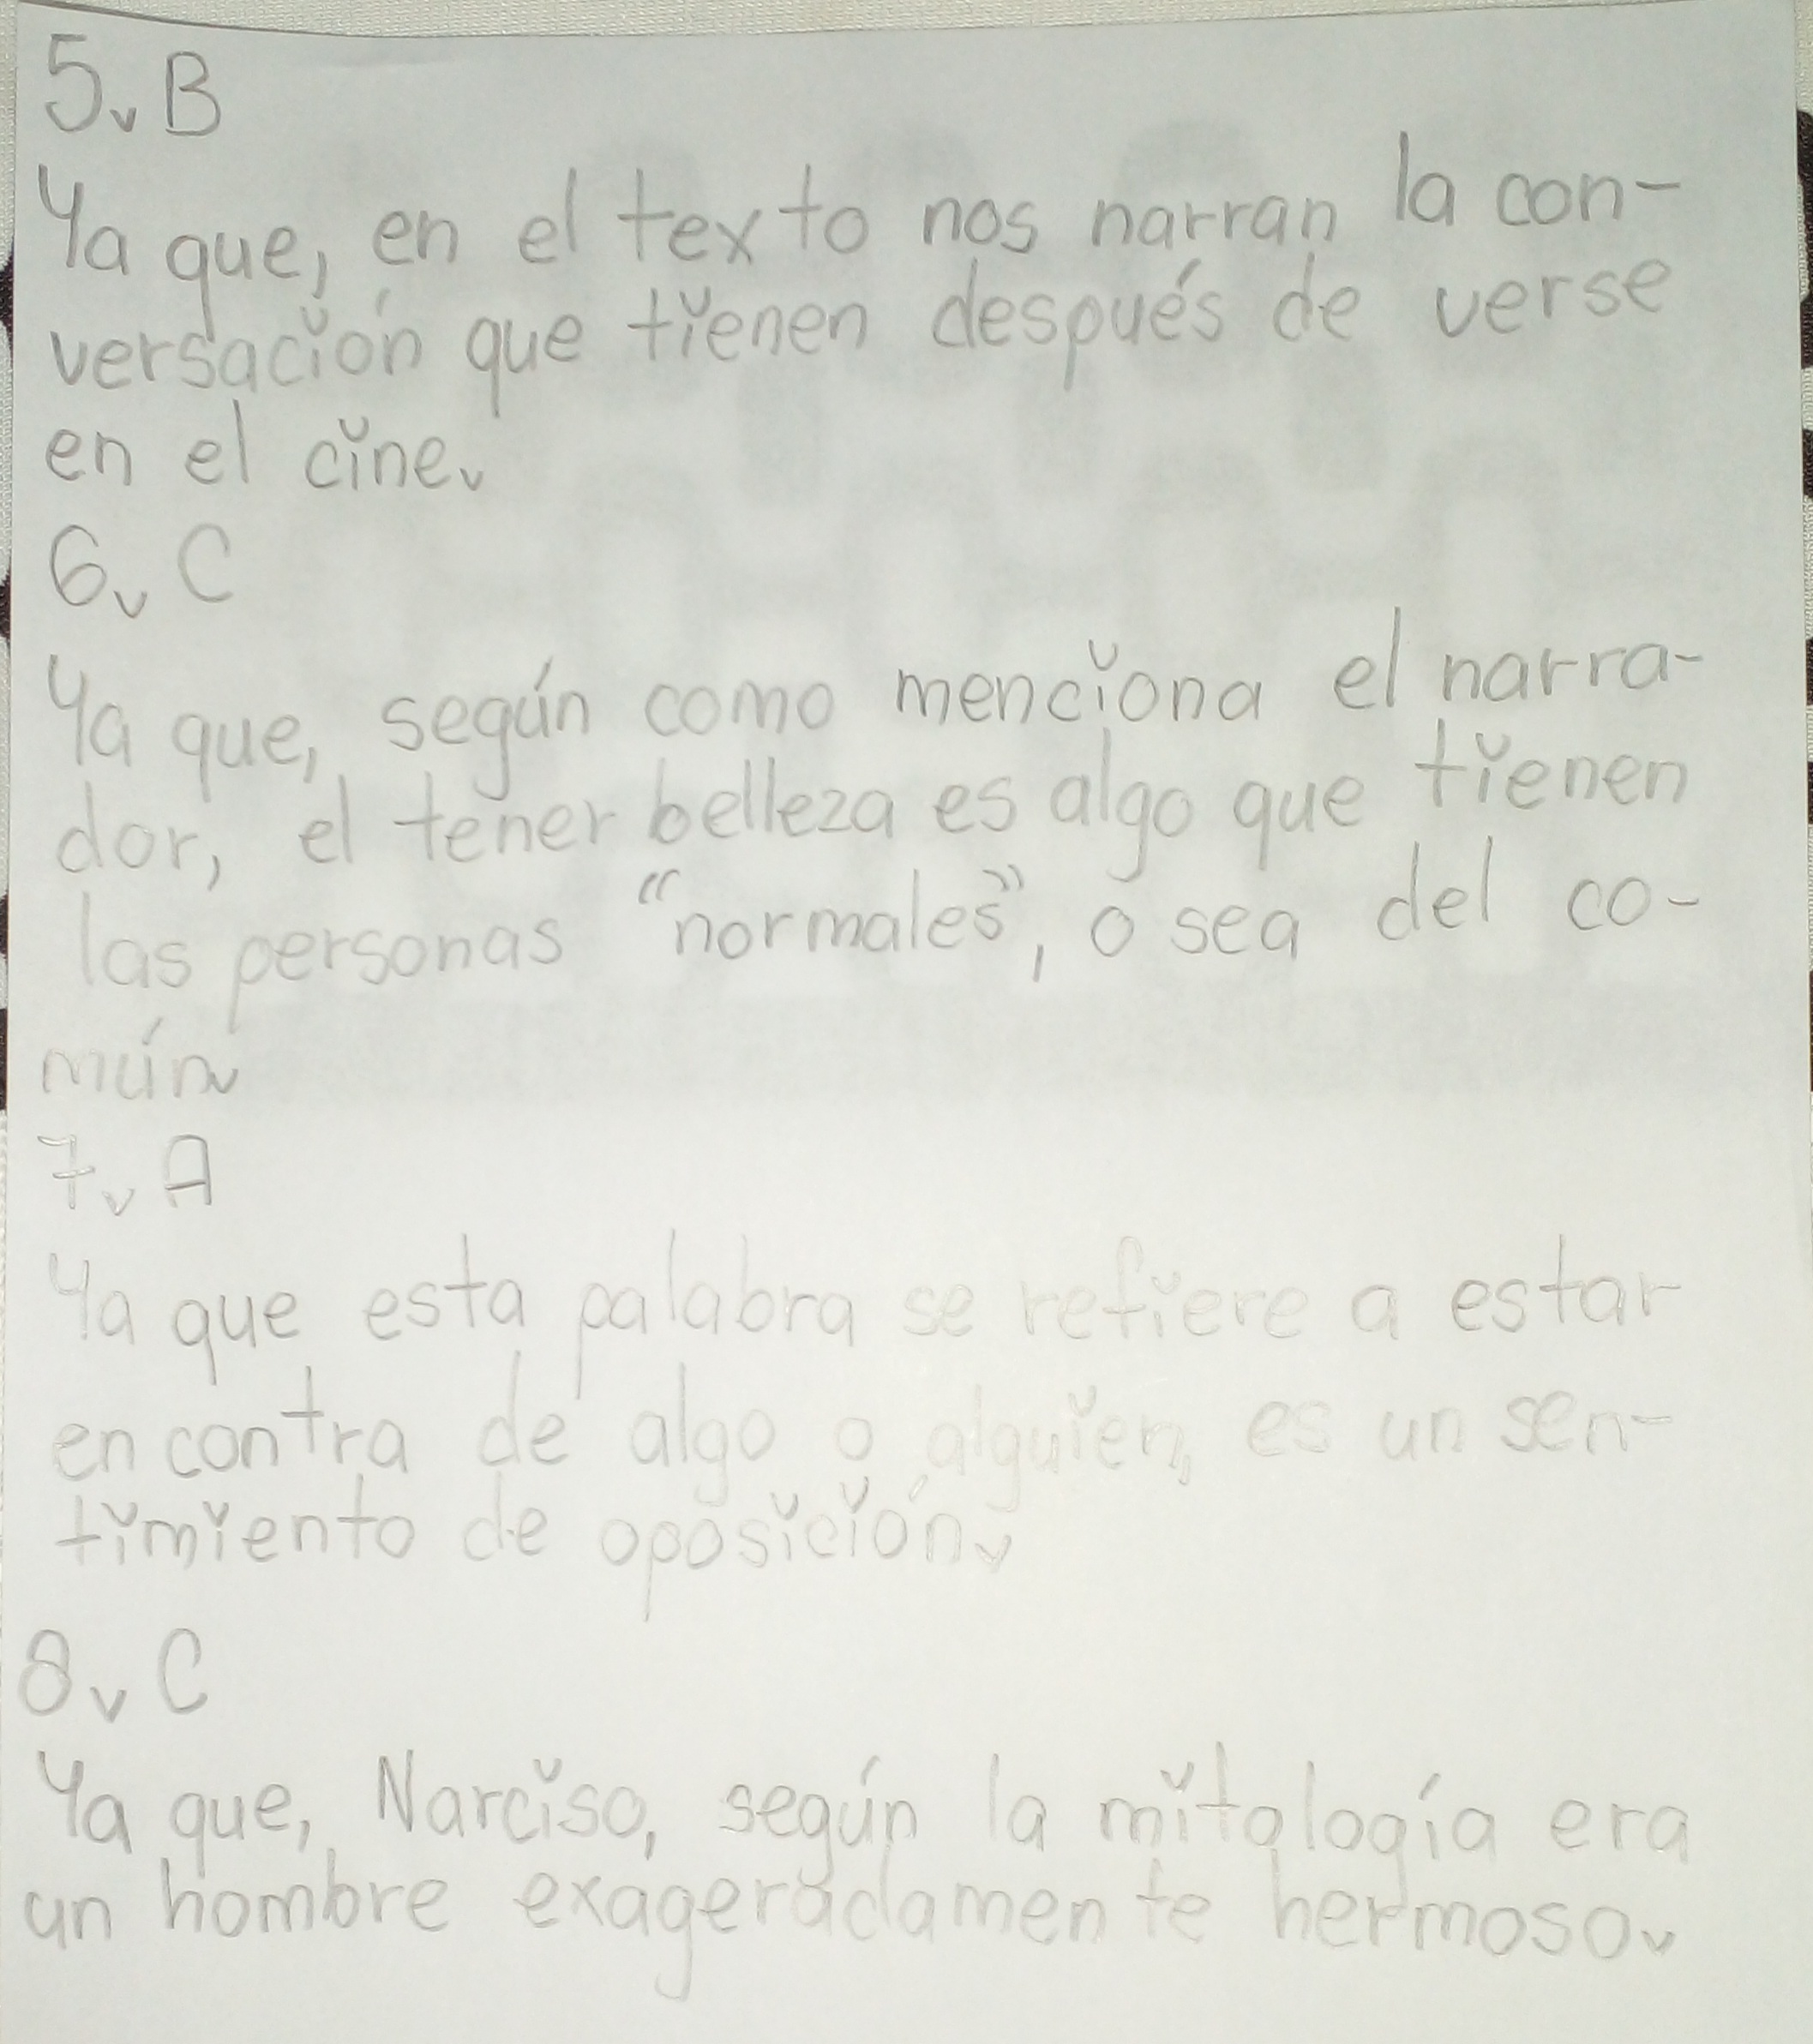 5. B
Ya que, en el texto nos narran la con-
versación que tienen después de verse
en el cine.
6. C
Ya que, según como menciona el narra-
dor, el tener belleza es algo que tienen
las personas "normales", o sea del co-
mún.
7. A
Ya que esta palabra se refiere a estar
en contra de algo o alguien, es un sen-
timiento de oposición.
8. C
Ya que, Narciso, según la mitología era
un hombre exageradamente hermoso.